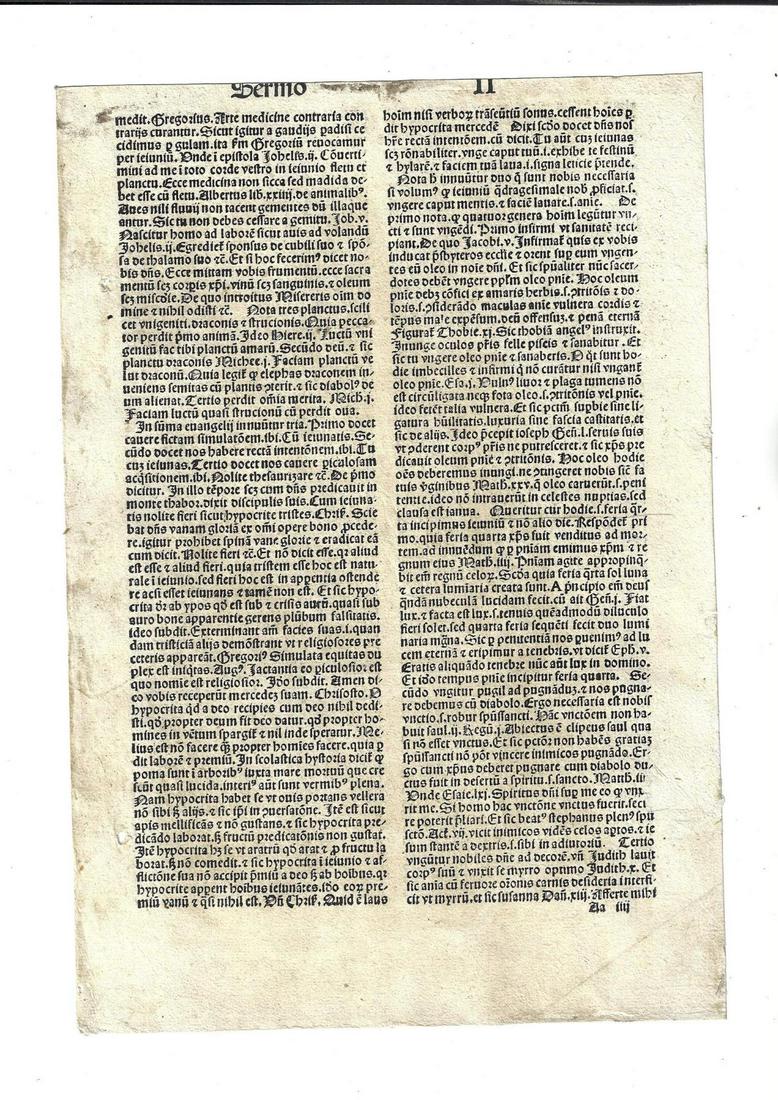 Sermo II
medit. Gregorius. Arte medicine contraria con
trarijs curantur. Sicut igitur a gaudijs padisi ce
cidimus ꝑ gulam. ita ẜm Gregoriū reuocamur
per ieiuniū. Vnde ī epistola Johelis.ij. Cōuerti
mini ad me ī toto corde vestro in ieiunio fletu et
planctu. Ecce medicina non sicca sed madida de-
bet esse cū fletu. Albertus lib.xxiij. de animalibꝰ.
Aues nili fluuij non tacent gementes dū illaque
antur. Sic tu non debes cessare a gemitu. Job.v.
Nascitur homo ad laborē sicut auis ad volandū
Johelis.ij. Egrediet̃ sponsus de cubili suo ⁊ spō-
sa de thalamo suo ⁊c̄. Et si hoc fecerimꝰ dicet no-
bis dn̄s. Ecce mittam vobis frumentū. ecce sacra
mentū scꝫ corꝑis xp̄i. vinū scꝫ sanguinis. ⁊ oleum
scꝫ mīscd̄ie. De quo introitus Misereris oīm do
mine ⁊ nihil odisti ⁊c̄. Nota tres planctus. scili
cet vnigeniti. draconis ⁊ strucionis. Quia pecca-
tor perdit pⁱmo animā. Ideo Hiere.ij. Luctū vni
genitū fac tibi planctū amarū. Secūdo deū. ⁊ sic
planctu draconis Michee.j. Faciam planctū ve
lut draconū. Quia legit̃ ꝙ elephas draconem in-
ueniens semitas cū plantis ꝯterit. ⁊ sic diabolꝰ de
um alienat. Tertio perdit om̄ia merita. Mich.j.
Faciam luctū quasi strucionū cū perdit oua.
In sūma euangelij innuūtur tria. Primo docet
cauere fictam simulatōem. ibi. Cū ieiunatis. Se-
cūdo docet nos habere rectā intentōnem. ibi. Tu
cuꝫ ieiunas. Tertio docet nos cauere piculosam
acq̄sitionem. ibi. Nolite thesaurizare ⁊c̄. De pⁱmo
dicitur. In illo tēpore scꝫ cum dn̄s predicauit in
monte thabor. dixit discipulis suis. Cum ieiuna-
tis nolite fieri sicut hypocrite tristes. Chriẜ. Scie
bat dn̄s vanam gloriā ex om̄i opere bono ꝓcede-
re. igitur prohibet spinā vane glorie ⁊ eradicat eā
cum dicit. Nolite fieri ⁊c̄. Et nō dicit esse. qꝛ aliud
est esse ⁊ aliud fieri. quia tristem esse hoc est natu-
rale ī ieiunio. sed fieri hoc est in apparentia ostende
re ac si esset ieiunans ⁊ tamē non est. Et sic hypo-
crita dr̄ ab ypos qd̄ est sub ⁊ crisis aurū. quasi sub
auro bone apparentie gerens plūbum falsitatis.
ideo subdit. Exterminant am̄ facies suas. i. quan
dam tristiciā alijs demōstrant vt religiosores pre
ceteris appareāt. Gregoriꝰ Simulata equitas du
plex est iniq̄tas. Augꝰ. Jactantia eo piculosior est
quo nomīe est religiosior. Iđo subdit. Amen di-
co vobis receperūt mercedeꝫ suam. Chrisosto. O
hypocrita qd̄ a deo recipies cum deo nihil dedi-
sti. qd̄ propter deum fit deo datur. qd̄ propter ho-
mines in vētum spargit̃ ⁊ nil inde speratur. Me-
lius est nō facere qꝫ propter homīes facere. quia ꝑ
dit laborē ⁊ premiū. In scolastica hystoria dicit̃ ꝙ
poma sunt ī arboribꝰ iuxta mare mortuū que cre
scūt quasi lucida. interiꝰ aūt sunt vermibꝰ plena.
Nam hypocrita habet se vt ouis portans vellera
nō sibi ẜ alijs. ⁊ sic ip̄i in ꝯuersatōne. Itē est sicut
apis mellificās ⁊ nō gustans. ⁊ sic hypocrita pre-
dicādo laborat. ẜ fructū predicatōnis non gustat.
Itē hypocrita hꝫ se vt aratrū qd̄ arat ⁊ ꝓ fructu la
borat. ẜ nō comedit. ⁊ sic hypocrita ī ieiunio ⁊ af-
flictōne sua nō accipit pⁱmiū a deo ẜ ab hoībus. qꝛ
hypocrite apparent hoībus ieiunātes. iđo eoꝝ pre-
miū vanū ⁊ q̄si nihil est. Vn̄ Chriẜ. Quid ē laus
hoīm nisi verboꝝ trāseūtiū sonus. cessent hoīes ꝑ
dit hypocrita mercedē Dixi scd̄o docet dn̄s nos
hr̄e rectā intentōem. cū dicit. Tu aūt cuꝫ ieiunas
scꝫ rōnabiliter. vnge caput tuū. i. exhibe te festinū
⁊ hylarē. ⁊ faciem tuā laua. i. signa leticie p̄tende.
Nota h̄ innuūtur duo q̄ sunt nobis necessaria
si volumꝰ ꝙ ieiuniū q̄dragesimale nob̄ ꝓficiat. s.
vngere caput mentis. ⁊ faciē lauare. s. anīe. De
primo nota. ꝙ quatuor genera hoīm legūtur vn-
cti ⁊ sunt vngēdi. Primo infirmi vt sanitatē reci-
piant. De quo Jacobi.v. Infirmat̃ quis ex vobis
inducat p̄sbyteros ecclīe ⁊ orent suꝑ eum vngen-
tes eū oleo in noīe dn̄i. Et sic spūaliter nūc sacer-
dotes debēt vngere pplm̄ oleo pn̄ie. Hoc oleum
pn̄ie debꝫ cōfici ex amaris herbis. s. ꝯtritōnis ⁊ do-
loris. s. ꝯsiderādo maculas anīe vulnera cordis ⁊
tēpus male expēsum. deū offensuꝫ. ⁊ penā eternā
Figurat̃ Thobie.xj. Sic thobiā angelꝰ instruxit.
Inunge oculos pr̄is felle piscis ⁊ sanabitur. Et
sic tu vngere oleo pn̄ie ⁊ sanaberis. O qt̄ sunt ho-
die imbecilles ⁊ infirmi q̄ nō curātur nisi vngant̃
oleo pn̄ie. Esa.j. Vulnꝰ liuor ⁊ plaga tumens nō
est circūligata neqꝫ fota oleo. s. ꝯtritōnis vel pn̄ie.
ideo fetēt talia vulnera. Et sic pctm̄ supbie sine li-
gatura hūilitatis. luxuria sine fascia castitatis. et
sic de alijs. Ideo p̄cepit ioseph Geñ.l. seruis suis
vt ꝯderent corpꝰ pr̄is ne putresceret. ⁊ sic xp̄s pre
dicauit oleum pn̄ie ⁊ ꝯtritōnis. Hoc oleo hodie
oēs deberemus inungi. ne ꝯtingeret nobis sic̄ fa
tuis v̄ginibus Math̄.xxv. q̄ oleo caruerūt. s. peni
tentie. ideo nō intrauerūt in celestes nuptias. sed
clausa est ianua. Queritur cur hodie. s. feria q̄r-
ta incipimus ieiuniū ⁊ nō alio die. Respōdet̃ pri
mo. quia feria quarta xp̄s fuit venditus ad mor-
tem. ad innuēdum ꝙ ꝑ pn̄iam emimus xp̄m ⁊ re
gnum eius Math̄.iiij. Pn̄iam agite appropinq̄-
bit em̄ regnū celoꝝ. Scd̄a quia feria q̄rta sol luna
⁊ cetera lumīaria creata sunt. A pⁱncipio em̄ deus
q̄ndā nubeculā lucidam fecit. cū ait Geñ.j. Fiat
lux. ⁊ facta est lux. s. tenuis quēadmodū diluculo
fieri solet. sed quarta feria seq̄nti fecit duo lumi
naria mg̃na. Sic ꝑ penitentiā nos ꝑuenimꝰ ad lu
cem eternā ⁊ eripimur a tenebris. vt dicit̃ Eph̄.v.
Eratis aliquādo tenebre nūc aūt lux in domino.
Et iđo tempus pn̄ie incipitur feria quarta. Se-
cūdo vngitur pugil ad pugnāduꝫ. ⁊ nos pugna-
re debemus cū diabolo. Ergo necessaria est nobis
vnctio. s. robur spūssancti. Hāc vnctōem non ha-
buit saul.ij. Regū.j. Abiectus ē clipeus saul qua
si nō esset vnctus. Et sic pctōr̄ non habēs gratiaꝫ
spūssancti nō pōt vincere inimicos pugnādo. Er-
go cum xp̄us deberet pugnare cum diabolo du-
ctus fuit in desertū a spiritu. s. sancto. Matth̄.iii
Vnde Esaie.lxj. Spiritus dn̄i suꝑ me eo ꝙ vnx
rit me. Si homo hac vnctōne vnctus fuerit. seci
re poterit p̄liari. Et sic beatꝰ stephanus plenꝰ spū
sctō. Act̄.vij. vicit inimicos vidēs celos aꝑtos. ⁊ ie
sum stantē a dextris. s. sibi in adiutoriū. Tertio
vngūtur nobiles dn̄e ad decorē. vn̄ Judith lauit
corpꝰ suū ⁊ vnxit se myrro optimo Judith.x. Et
sic anīa cū feruore orōnis carnis desideria interfi-
cit vt myrrū. et sic susanna Dañ.xiij. Afferte mihi
Aa iiij